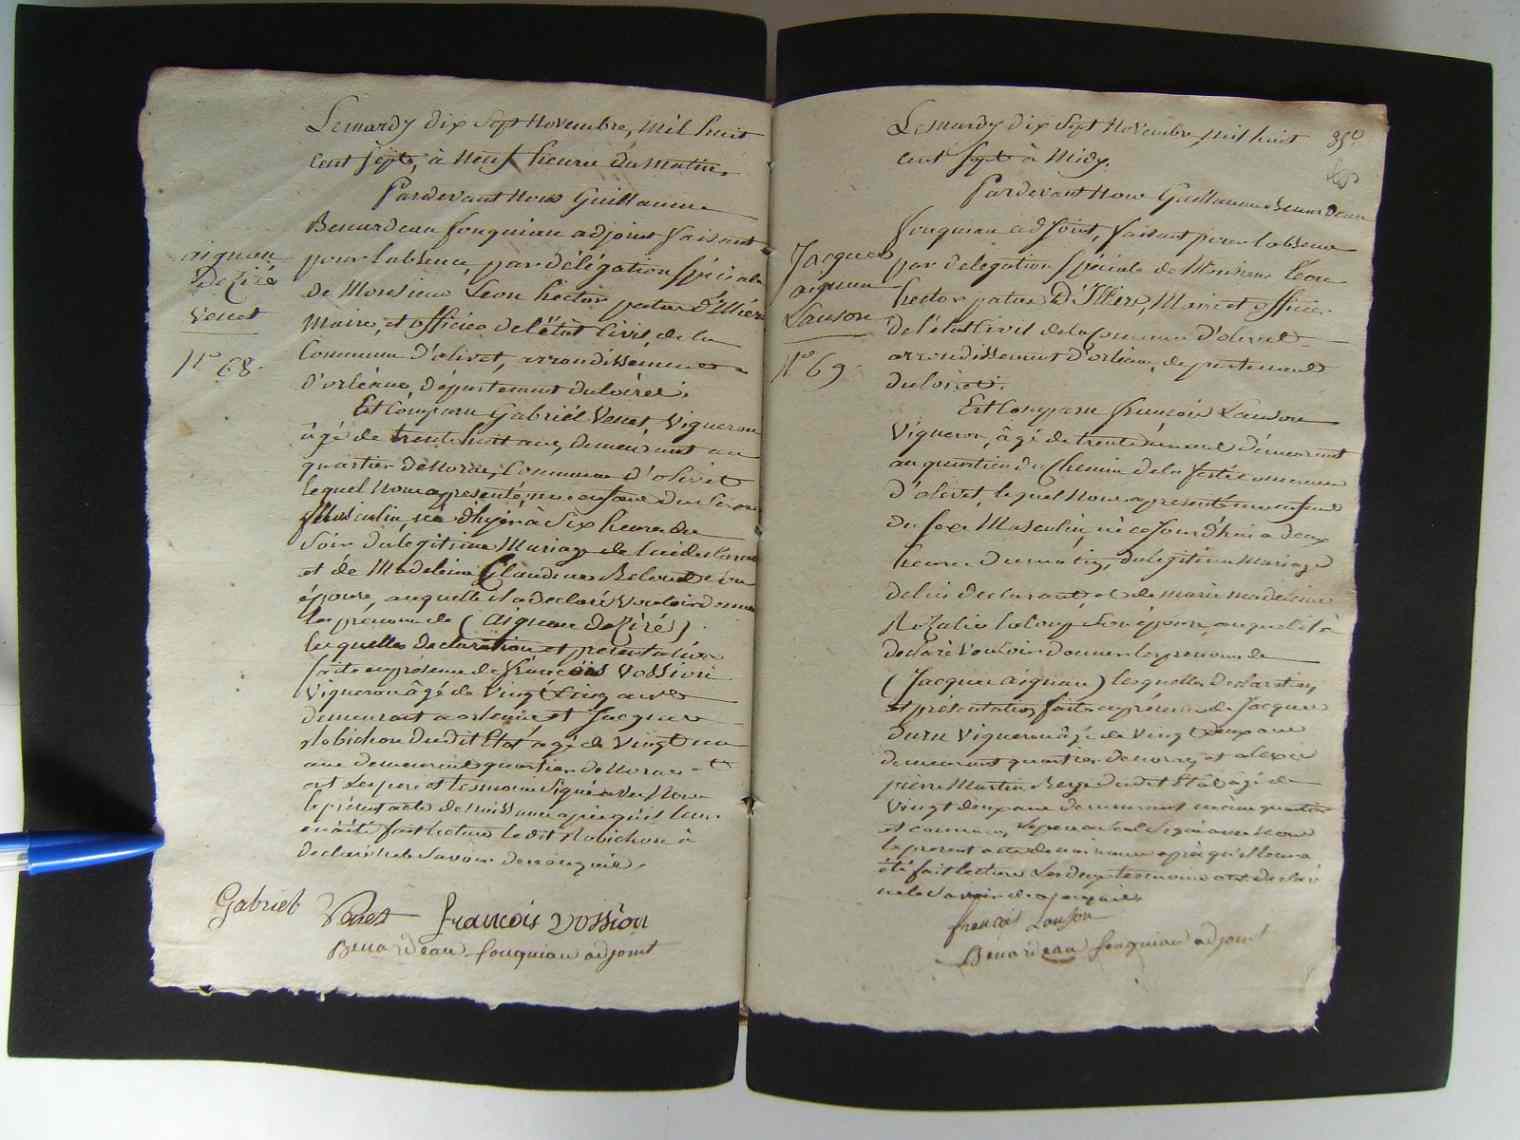 Le mardy dix sept Novembre, mil huit
cent sept, à neuf heures du matin.
Pardevant Nous Guillaume
Benardeau fouqueau adjoint faisant
pour l'absence, par délégation spéciale
de Monsieur Leon hector patas D'Illiers
Maire, et officier de l'état Civil, de la
Commune d'olivet, arrondissement
d'orléans, département du loiret.
Est Comparu Gabriel Venet, Vigneron
âgé de trente huit ans, demeurant au
quartier de Noras, Commune d'olivet
lequel Nous a presenté, un enfant du Sexe
Masculin, né d'hyer à Six heures du
Soir du legitime Mariage de lui declarant
et de Madeleine Claudine son
épouse, auquel il a declaré vouloir donner
les prenoms de (aignan deziré).
lesquelles declaration et presentation
faite en presence de François Vossion
Vigneron âgé de Vingt Cinq ans
demeurant a et Jacques
Robichon dudit Etat agé de Vingt un
ans demeurant quartier de Noras
ont les pere et temoin Signé avec Nous
le présent acte de naissance après qu'il leur
en a été fait lecture le dit Robichon a
declaré ne le Savoir de ce enquis.
aignan
Deziré
Venet
N° 68.
Gabriel Venet françois Vossion
Benardeau fouqueau adjoint
Le Mardy dix Sept Novembre, mil huit
cent sept à Midy.
35
Pardevant Nous Guillaume Benardeau
fouqueau adjoint, faisant pour l'absence
par delegation spéciale de Monsieur Leon
hector patas D'Illiers, Maire et officier
de l'état Civil de la Commune d'olivet
arrondissement d'orléans, departement
du loiret.
Est Comparu françois Lanson
Vigneron, âgé de trente deux ans demeurant
au quartier du Chemin de la ferté commune
d'olivet, lequel Nous a presenté un enfant
du sexe Masculin, né ce jourd'hui a deux
heures du matin, du legitime Mariage
de lui declarant, et de marie madeleine
Rozalie leloup Son épouse, auquel il a
declaré Vouloir donner les prenoms de
(Jacques aignan) lesquelles declaration,
et présentation faite en présence de Jacques
Duru Vigneron âgé de Vingt deux ans
demeurant quartier de noras, et alexis
pierre Martin dudit Etat âgé de
Vingt deux ans demeurant même quartier
et commune, le pere a Signé avec Nous
le present acte de naissance après qu'il leur a
été fait lecture Les deux temoins ont declaré
ne le Savoir de ce enquis
Jacques
aignan
Lanson
N° 69.
françois Lanson
Benardeau fouqueau adjoint